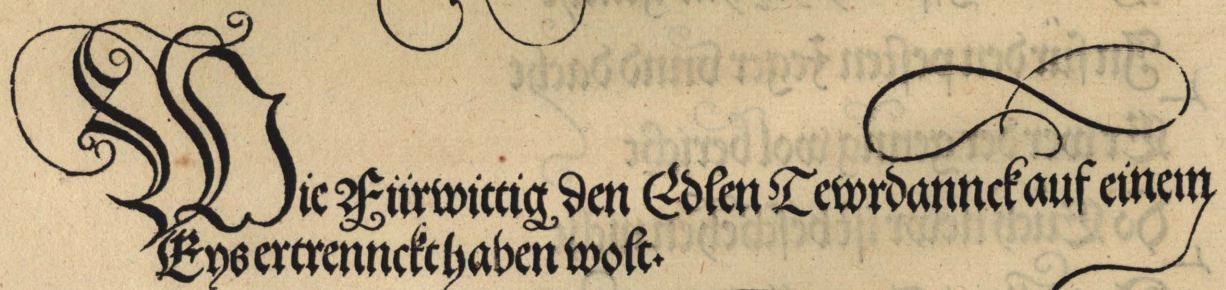 Wie Fürwittig den Edlen Tewrdannck auf einem
Eys ertrennckt haben wolt.